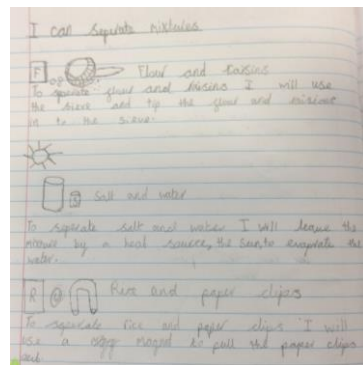 I can seperate mixtures
F Flour and raisins
To seperate flour and raisins I will use
the sieve and tip the flour and raisins
in to the sieve.
S Salt and water
To seperate salt and water I will leave the
mixture by a heat source, the sun, to evaporate the
water.
R Rice and paper clips
To seperate rice and paper clips I will
use a magnet to pull the paper clips
out.